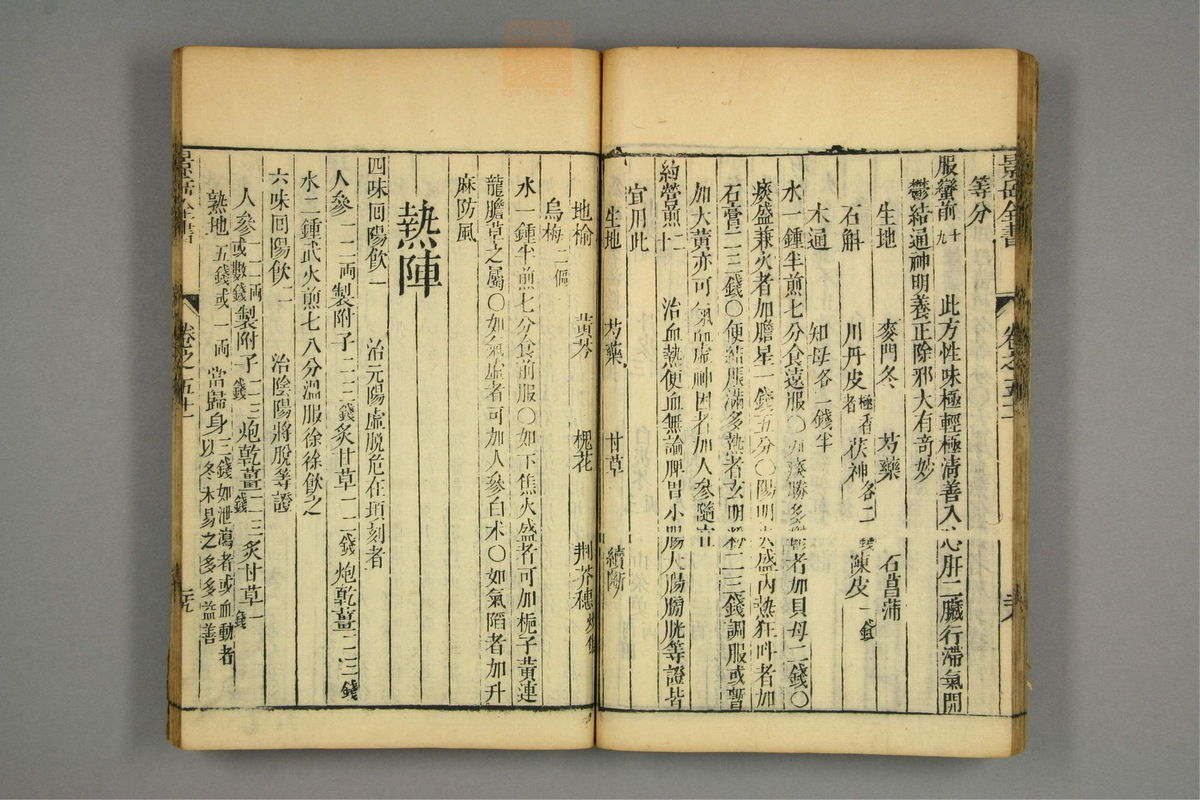 景岳全書 卷之五十一
等分
服蠻煎十九 此方性味極輕極清善入心肝二臟行滯氣開
鬱結通神明養正除邪大有奇妙
生地 麥門冬 芍藥 石菖蒲
石斛 川丹皮極香者 茯神各二錢 陳皮一錢
木通 知母各一錢半
水一鍾半煎七分食遠服○如痰勝多鬱者加貝母二錢○
痰盛兼火者加膽星一錢五分○陽明火盛內熱狂叫者加
石膏二三錢○便結脹滿多熱者玄明粉二三錢調服或暫
加大黃亦可○氣虛神困者加人參隨宜
約營煎二十 治血熱便血無論脾胃小腸大腸膀胱等證皆
宜用此
生地 芍藥 甘草 續斷
地榆 黃芩 槐花 荆芥穗炒焦
烏梅二個
水一鍾半煎七分食前服○如下焦火盛者可加梔子黃連
龍膽草之屬○如氣虛者可加人參白朮○如氣陷者加升
麻防風
熱陣
四味回陽飲一 治元陽虛脫危在頃刻者
人參一二兩 製附子二三錢 炙甘草一二錢 炮乾薑二三錢
水二鍾武火煎七八分溫服徐徐飲之
六味回陽飲二 治陰陽將脫等證
人參一二兩或數錢 製附子二三錢 炮乾薑二三錢 炙甘草一錢
熟地五錢或一兩 當歸身三錢如泄瀉者或血動者以冬朮易之多多益善
景岳全書 卷之五十一